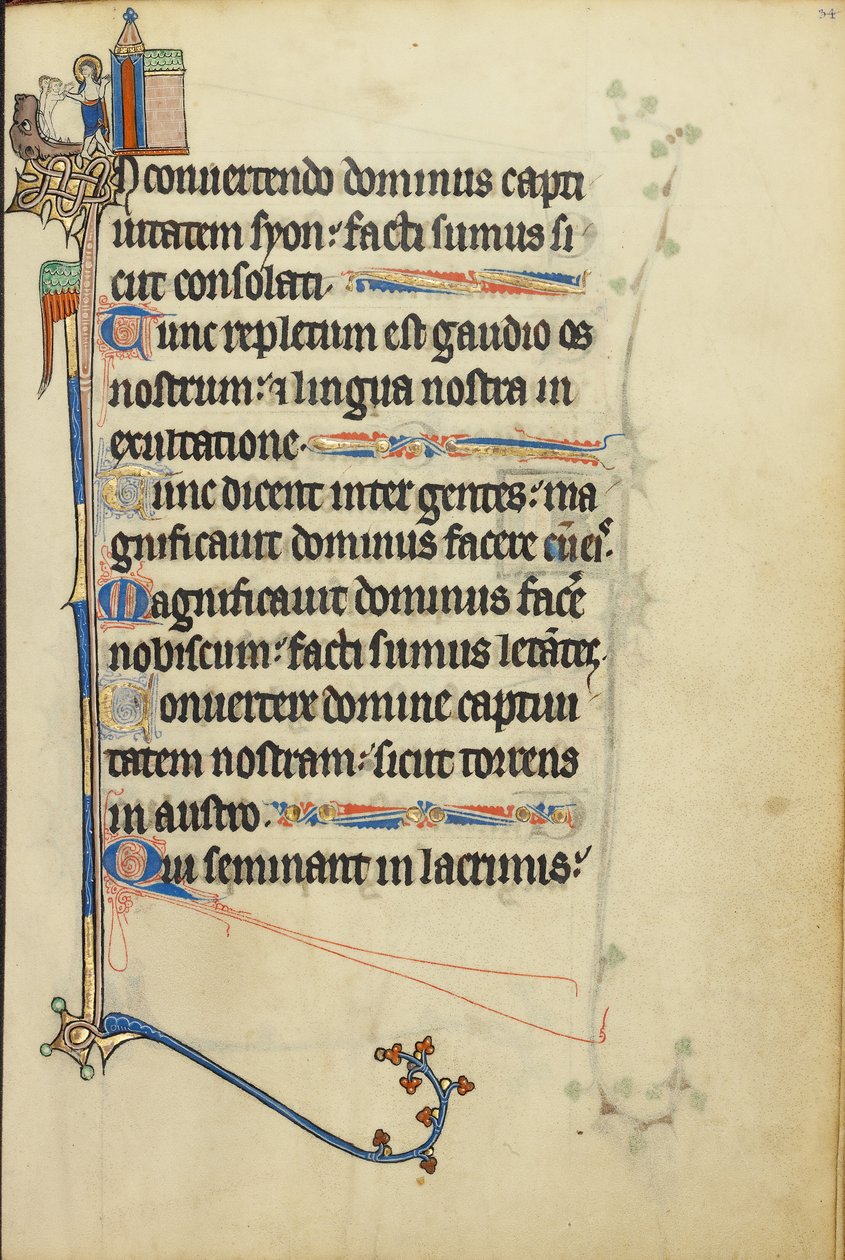 34
In conuertendo dominus capti
uitatem syon: facti sumus si
cut consolati.
Tunc repletum est gaudio os
nostrum: & lingua nostra in
exultatione.
Tunc dicent inter gentes: ma
gnificauit dominus facere cū eiˢ.
Magnificauit dominus facēe
nobiscum: facti sumus letātes.
Conuertere domine captiui
tatem nostram: sicut torrens
in austro.
Qui seminant in lacrimis: